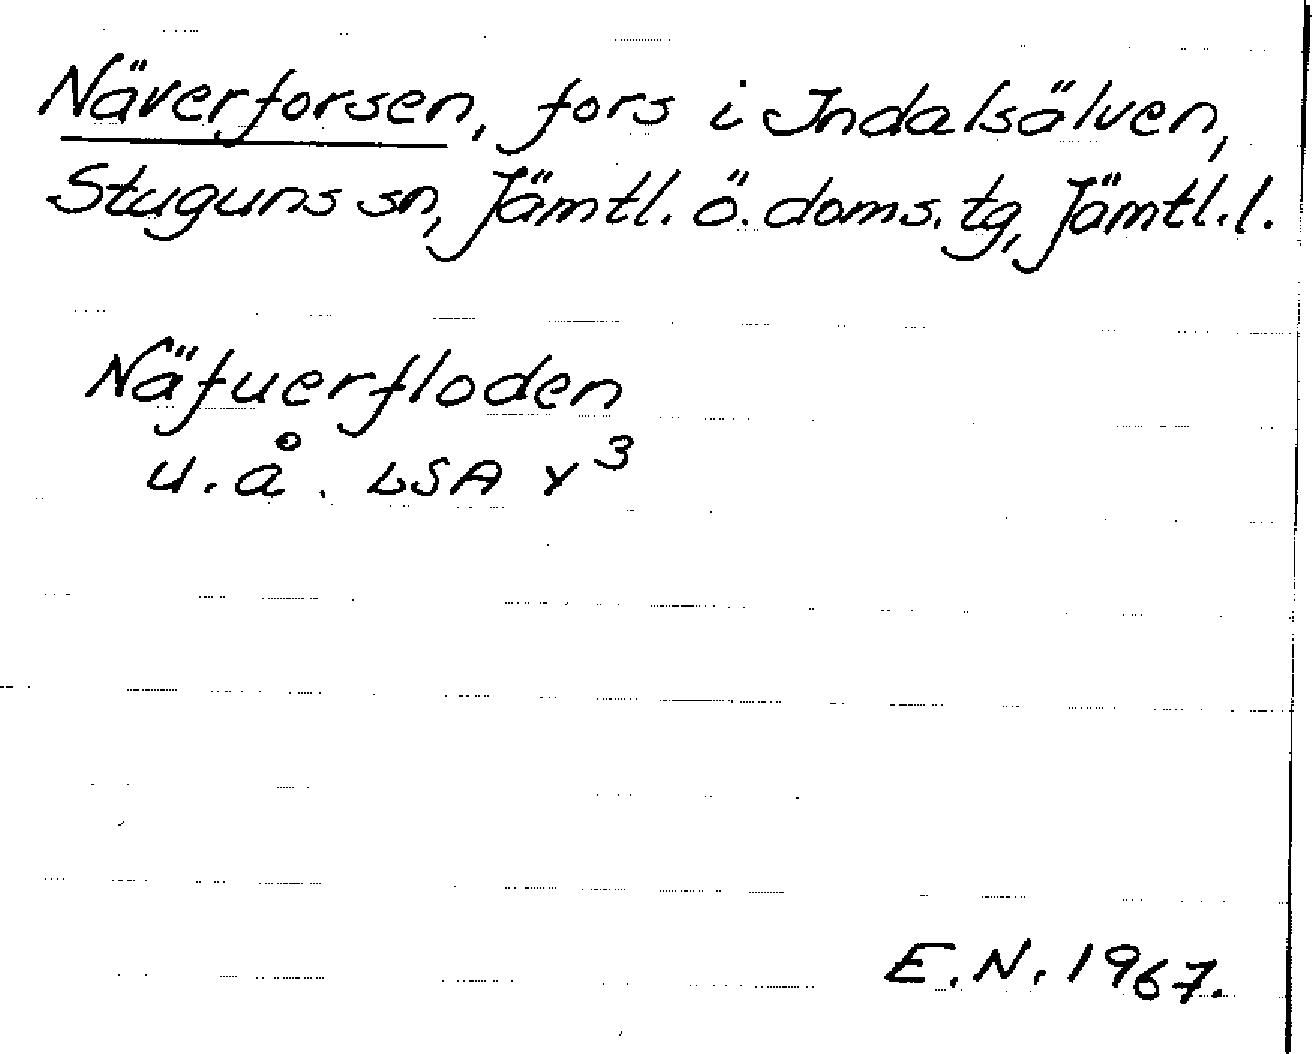 Näverforsen, fors i Indalsälven,
Stuguns sn, Jämtl. ö. doms. tg, Jämtl. l.
Näfuerfloden
u. å. LSA Y³
E. N. 1967.